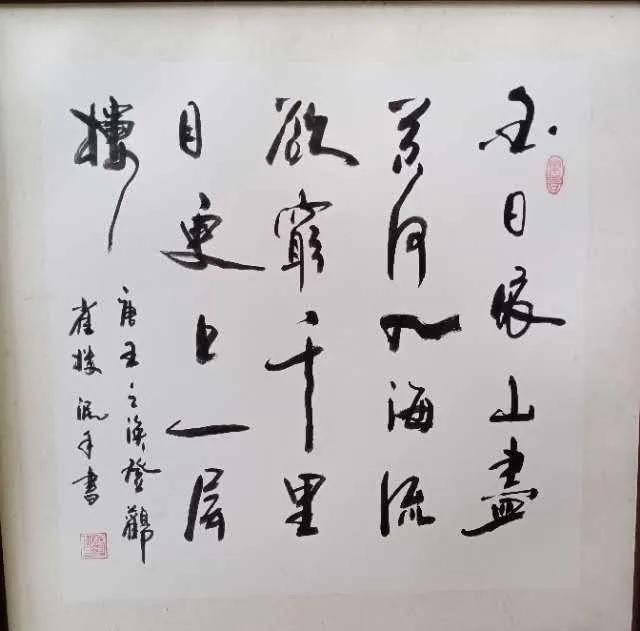 白日依山盡
黄河入海流
欲窮千里
目更上一層
樓
唐王之渙登鸛
雀樓 書